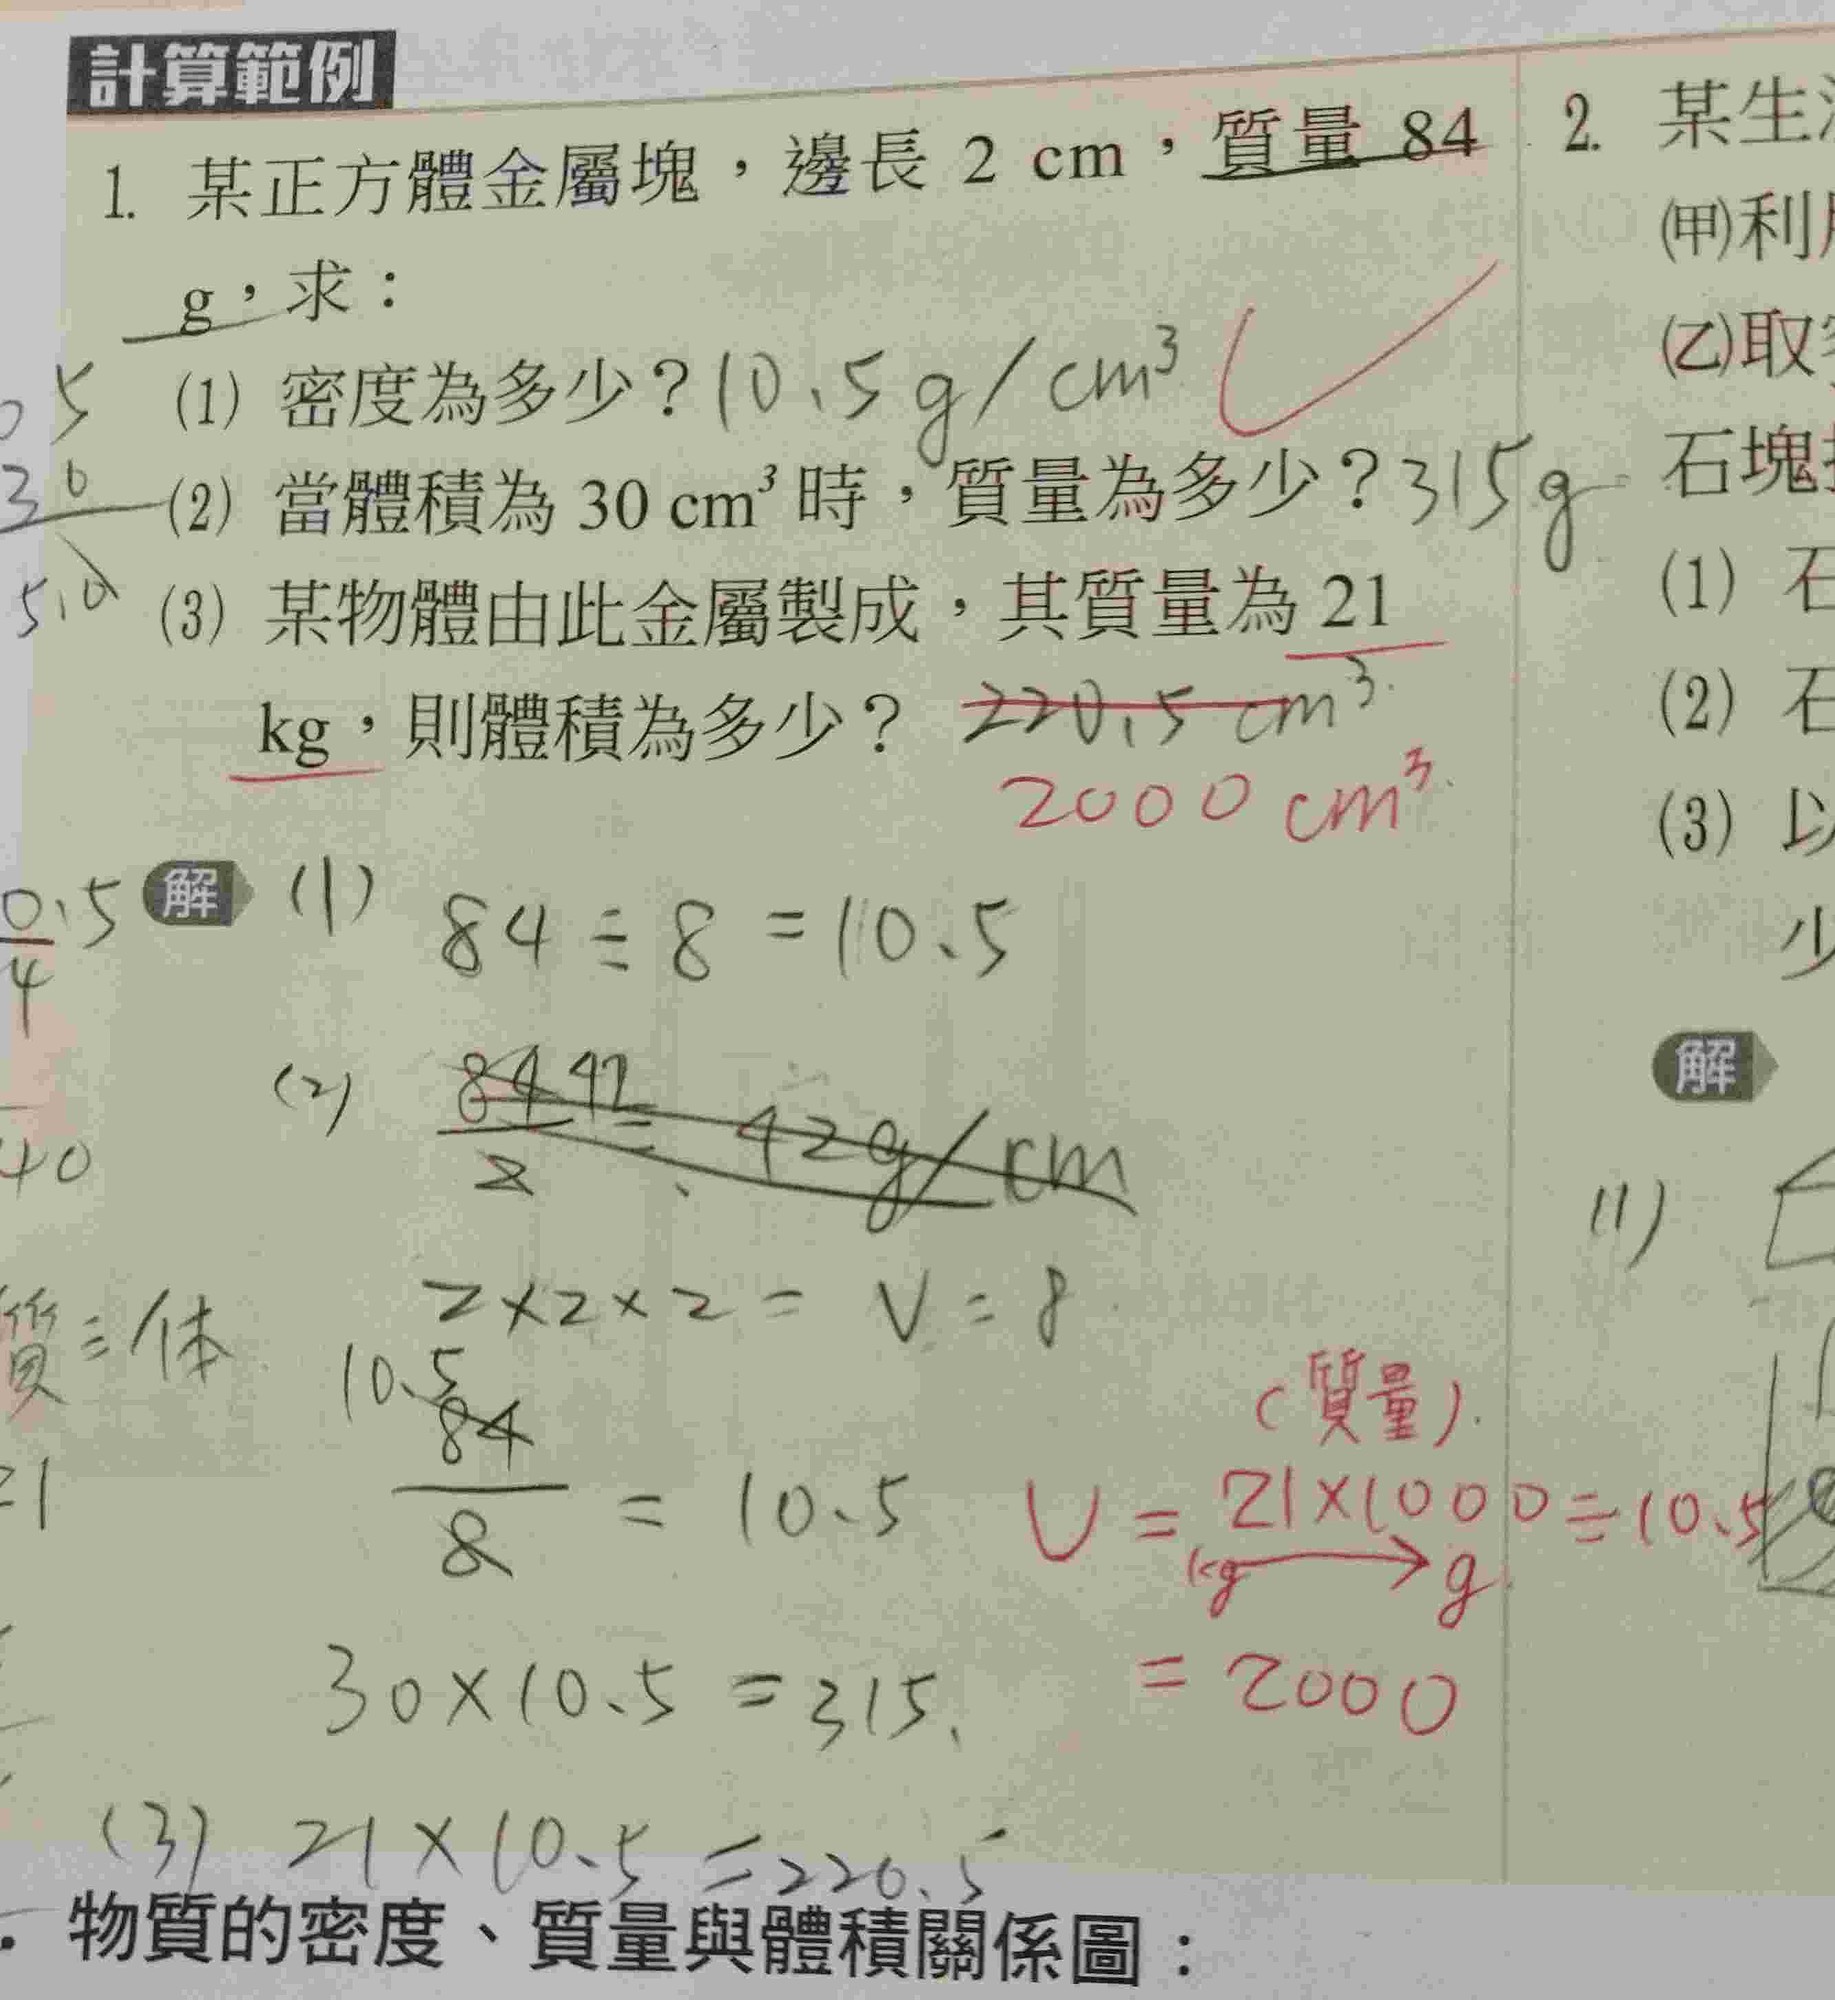 計算範例
1. 某正方體金屬塊，邊長 2 cm，質量 84
g，求：
(1) 密度為多少？10.5 g/cm³
(2) 當體積為 30 cm³ 時，質量為多少？315g
(3) 某物體由此金屬製成，其質量為 21
kg，則體積為多少？ 220.5 cm³
2000 cm³
解 (1) 84÷8=10.5
(2) 84 42
2 = 42g/cm
2×2×2= V=8
10.5
84
8 = 10.5
30×10.5=315
(3) 21×10.5=220.5
(質量)
V=21×1000÷10.5
kg→g
=2000
5
30
0.5
4
40
質÷体
=1
物質的密度、質量與體積關係圖：
2. 某生
(甲)利
(乙)取
石塊
(1) 石
(2) 石
(3) 以
少
解
(1)